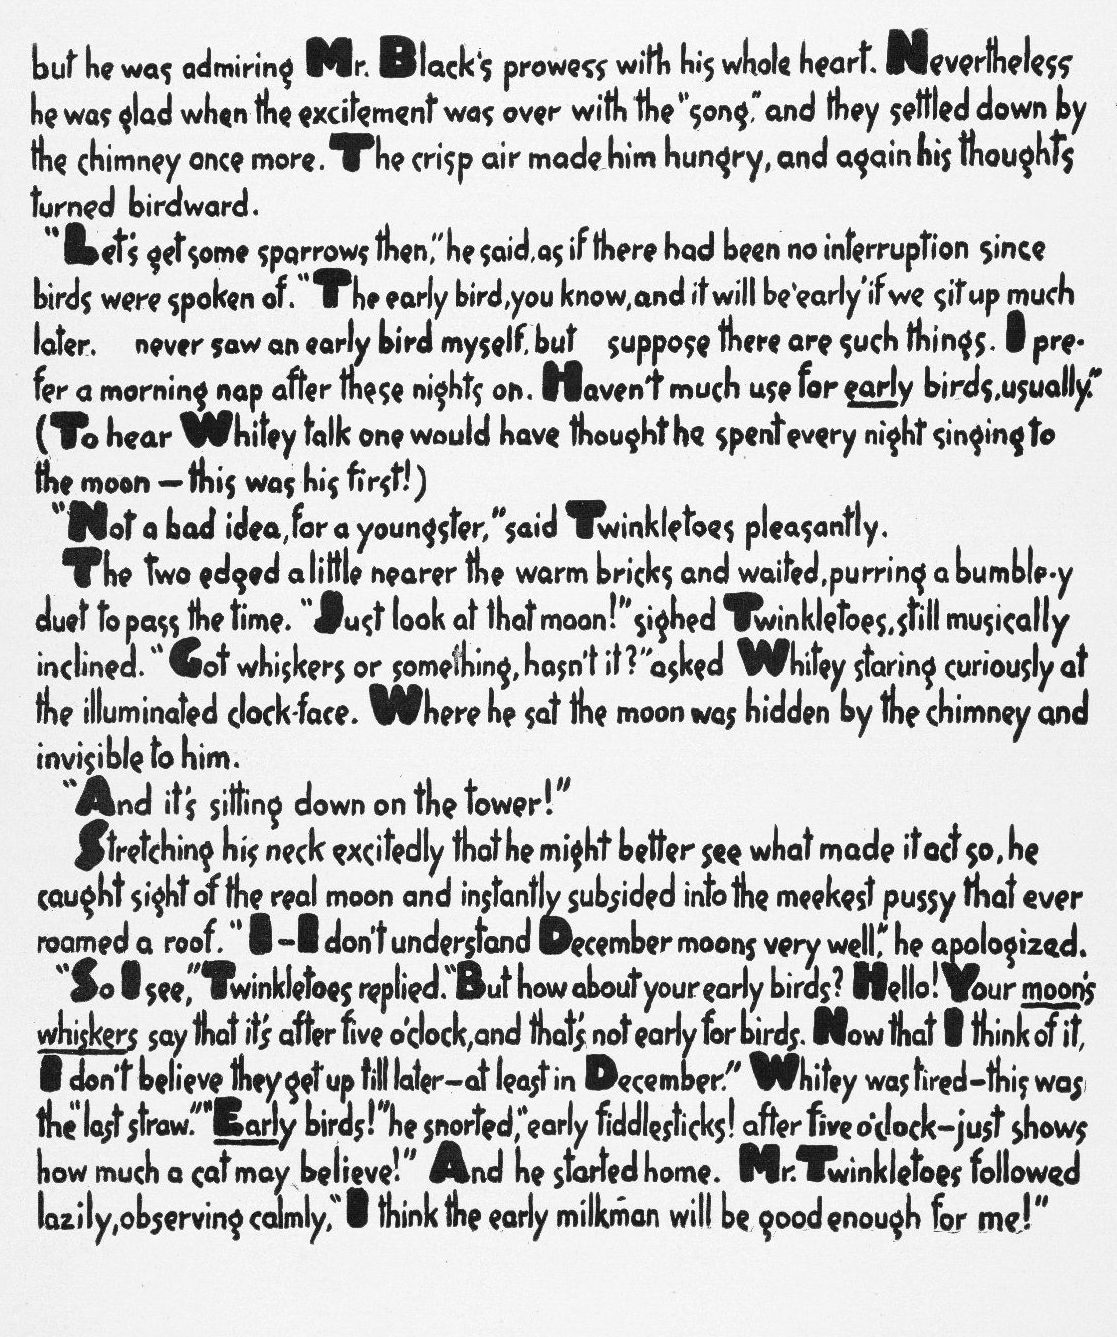 but he was admiring Mr. Black's prowess with his whole heart. Nevertheless
he was glad when the excitement was over with the "song," and they settled down by
the chimney once more. The crisp air made him hungry, and again his thoughts
turned birdward.
"Let's get some sparrows then," he said, as if there had been no interruption since
birds were spoken of. "The early bird, you know, and it will be 'early' if we sit up much
later. never saw an early bird myself, but suppose there are such things. I pre-
fer a morning nap after these nights on. Haven't much use for early birds, usually."
(To hear Whitey talk one would have thought he spent every night singing to
the moon — this was his first!)
"Not a bad idea, for a youngster," said Twinkletoes pleasantly.
The two edged a little nearer the warm bricks and waited, purring a bumble-y
duet to pass the time. "Just look at that moon!" sighed Twinkletoes, still musically
inclined. "Got whiskers or something, hasn't it?" asked Whitey staring curiously at
the illuminated clock-face. Where he sat the moon was hidden by the chimney and
invisible to him.
"And it's sitting down on the tower!"
Stretching his neck excitedly that he might better see what made it act so, he
caught sight of the real moon and instantly subsided into the meekest pussy that ever
roamed a roof. "I - I don't understand December moons very well," he apologized.
"So I see," Twinkletoes replied. "But how about your early birds? Hello! Your moon's
whiskers say that it's after five o'clock, and that's not early for birds. Now that I think of it,
I don't believe they get up till later—at least in December." Whitey was tired—this was
the "last straw." "Early birds!" he snorted, "early fiddlesticks! after five o'clock—just shows
how much a cat may believe!" And he started home. Mr. Twinkletoes followed
lazily, observing calmly, "I think the early milkman will be good enough for me!"